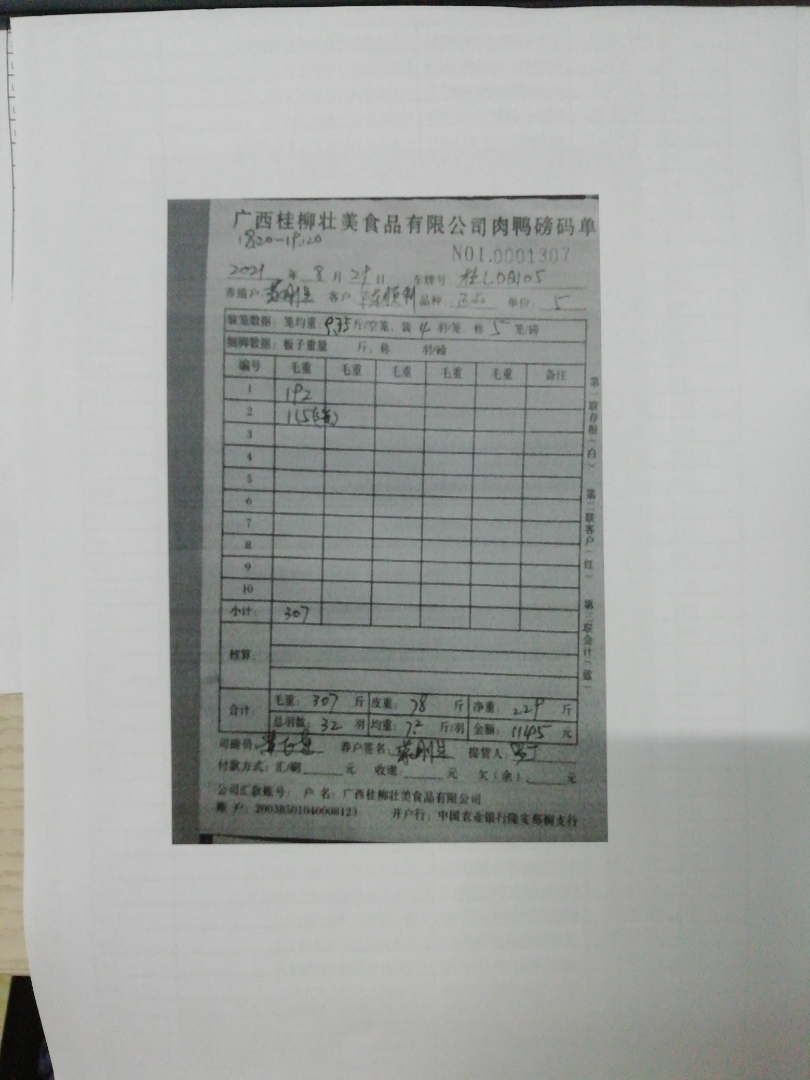 广西桂柳壮美食品有限公司肉鸭磅码单
18:20-19:20
NO1.0001307
2021 年 8 月 29 日 车牌号
养殖户: 客户 品种 单价: 5
装笼数据: 笼均重 9.75 斤/空笼, 装 4 羽/笼, 称 5 笼/磅
捆脚数据: 板子重量 斤, 称 羽/磅
编号 毛重 毛重 毛重 毛重 毛重 备注
1 192
2 115
3
4
5
6
7
8
9
10
小计: 307
核算:
合计: 毛重: 307 斤 皮重: 78 斤 净重: 229 斤
总羽数: 32 羽 均重: 7.2 斤/羽 金额: 1145 元
司磅员: 养户签名: 提货人:
付款方式: 汇/刷 元 收现: 元 欠(余): 元
公司汇款账号: 户 名: 广西桂柳壮美食品有限公司
账 户: 20038501040008123 开户行: 中国农业银行隆安那桐支行
第一联存根(白) 第二联客户(红) 第三联会计(蓝)